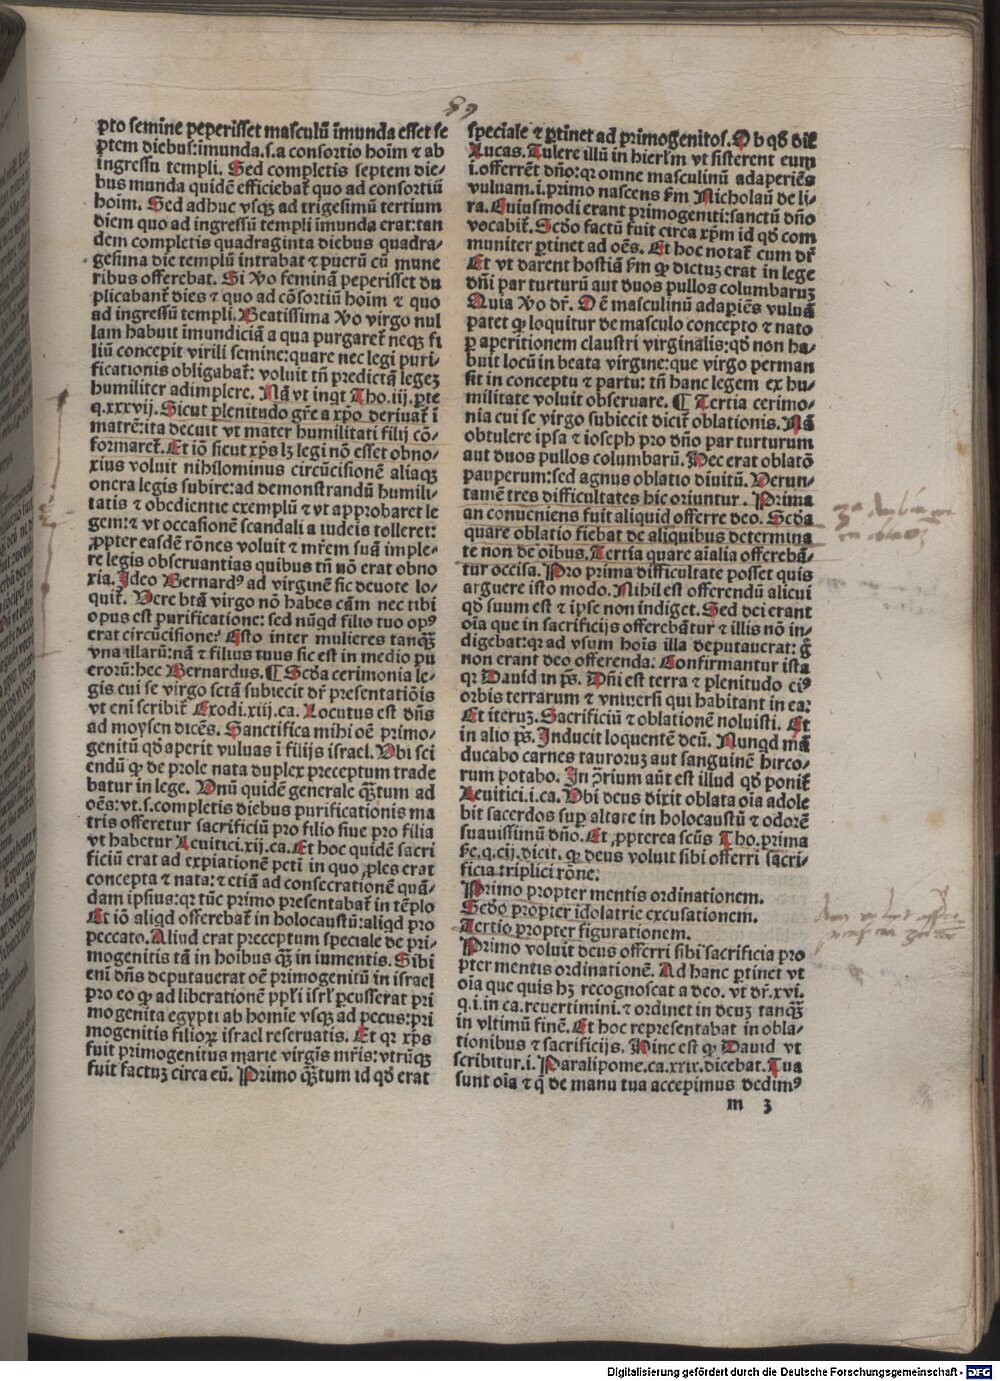 89
pto semine peperisset masculū īmunda esset se
ptem diebus: īmunda.s.a consortio hoīm ⁊ ab
ingressu templi. Sed completis septem die-
bus munda quidē efficiebat̄ quo ad consortiū
hoīm. Sed adhuc vsqꝫ ad trigesimū tertium
diem quo ad ingressū templi īmunda erat: tan
dem completis quadraginta diebus quadra-
gesima die templū intrabat ⁊ puerū cū mune
ribus offerebat. Si ꝟo feminā peperisset du
plicabant̄ dies ⁊ quo ad cōsortiū hoīm ⁊ quo
ad ingressū templi. Beatissima ꝟo virgo nul
lam habuit īmundiciā a qua purgaret̄ neqꝫ fi
liū concepit virili semine: quare nec legi puri-
ficationis obligabat̄: voluit tn̄ predictā legeꝫ
humiliter adimplere. Nā vt inqt Tho.iij.ꝑte
q.xxxvij. Sicut plenitudo gr̄e a xp̄o deriuat̄ ī
matrē: ita decuit vt mater humilitati filij cō-
formaret̄. Et iō sicut xp̄s lꝫ legi nō esset obno-
xius voluit nihilominus circūcisionē aliaqꝫ
onera legis subire: ad demonstrandū humili-
tatis ⁊ obedientie exemplū ⁊ vt approbaret le
gem: ⁊ vt occasionē scandali a iudeis tolleret:
ꝓpter easdē rōnes voluit ⁊ mr̄em suā imple-
re legis obseruantias quibus tn̄ nō erat obno
xia. Ideo Bernardꝰ ad virginē sic deuote lo-
quit̄. Uere btā virgo nō habes cām nec tibi
opus est purificatione: sed nūqd filio tuo opꝰ
erat circūcisione? Esto inter mulieres tanqꝫ
vna illarū: nā ⁊ filius tuus sic est in medio pu
erorū: hec Bernardus. ¶ Scd̄a cerimonia le-
gis cui se virgo sctā subiecit dr̄ presentatiōis
vt enī scribit̄ Exodi.xiij.ca. Locutus est dn̄s
ad moysen dicēs. Sanctifica mihi oē primo-
genitū qd̄ aperit vuluas ī filijs israel. Ubi sci
endū ꝙ de prole nata duplex preceptum trade
batur in lege. Unū quidē generale qꝫtum ad
oēs: vt.s.completis diebus purificationis ma
tris offeretur sacrificiū pro filio siue pro filia
vt habetur Leuitici.xij.ca. Et hoc quidē sacri
ficiū erat ad expiationē petī in quo ꝓles erat
concepta ⁊ nata: ⁊ etiā ad consecrationē quā-
dam ipsius: qr tūc primo presentabat̄ in tēplo
Et iō aliqd offerebat̄ in holocaustū: aliqd pro
peccato. Aliud erat preceptum speciale de pri-
mogenitis tā in hoībus qꝫ in iumentis. Sibi
eni dn̄s deputauerat oē primogenitū in israel
pro eo ꝙ ad liberationē ppl̄i isrl̄ ꝑcusserat pri
mogenita egypti ab homie vsqꝫ ad pecus: pri
mogenitis filioꝝ israel reseruatis. Et qr xp̄s
fuit primogenitus marie virgīs mr̄is: vtrūqꝫ
fuit factuꝫ circa eū. Primo qꝫtum id qd̄ erat
speciale ⁊ ꝑtinet ad primogenitos. Ob qd̄ dic̄
Lucas. Tulere illū in hierl̄m vt sisterent eum
i.offerrēt dn̄o: qr omne masculinū adaperiēs
vuluam.i.primo nascens ẜm Nicholaū de li-
ra. Cuiusmodi erant primogeniti: sanctū dn̄o
vocabit̄. Scd̄o factū fuit circa xp̄m id qd̄ com
muniter ꝑtinet ad oēs. Et hoc notat̄ cum dr̄
Et vt darent hostiā ẜm ꝙ dictuꝫ erat in lege
dn̄i par turturū aut duos pullos columbaruꝫ
Quia ꝟo dr̄. Oē masculinū adaꝑiēs vuluā
patet ꝙ loquitur de masculo concepto ⁊ nato
ꝑ aperitionem claustri virginalis: qd̄ non ha-
buit locū in beata virgine: que virgo perman
sit in conceptu ⁊ partu: tn̄ hanc legem ex hu-
militate voluit obseruare. ¶ Tertia cerimo-
nia cui se virgo subiecit dicit̄ oblationis. Nā
obtulere ipsa ⁊ ioseph pro dn̄o par turturum
aut duos pullos columbarū. Hec erat oblatō
pauperum: sed agnus oblatio diuitū. Uerun-
tamē tres difficultates hic oriuntur. Prima
an conueniens fuit aliquid offerre deo. Scd̄a
quare oblatio fiebat de aliquibus determina
te non de oībus. Tertia quare aīalia offerebā-
tur occisa. Pro prima difficultate posset quis
arguere isto modo. Nihil est offerendū alicui
qd̄ suum est ⁊ ipse non indiget. Sed dei erant
oīa que in sacrificijs offerebātur ⁊ illis nō in-
digebat: qr ad vsum hoīs illa deputauerat: g̊
non erant deo offerenda. Confirmantur ista
qr Dauid in ps̄. Dn̄i est terra ⁊ plenitudo eiꝰ
orbis terrarum ⁊ vniuersi qui habitant in ea:
Et iteruꝫ. Sacrificiū ⁊ oblationē noluisti. Et
in alio ps̄. Inducit loquentē deū. Nunqd mā
ducabo carnes tauroruꝫ aut sanguinē hirco-
rum potabo. In ꝯrium aūt est illud qd̄ ponit̄
Leuitici.i.ca. Ubi deus dixit oblata oīa adole
bit sacerdos suꝑ altare in holocaustū ⁊ odorē
suauissimū dn̄o. Et ꝓpterea scūs Tho.prima
ẜe.q.cij.dicit. ꝙ deus voluit sibi offerri sacri-
ficia triplici rōne.
Primo propter mentis ordinationem.
Scd̄o propter idolatrie excusationem.
Tertio propter figurationem.
Primo voluit deus offerri sibi sacrificia pro
pter mentis ordinationē. Ad hanc ꝑtinet vt
oīa que quis hꝫ recognoscat a deo. vt dr̄.xvi.
q.i.in ca.reuertimini. ⁊ ordinet in deuꝫ tanqꝫ
in vltimū finē. Et hoc representabat in obla-
tionibus ⁊ sacrificijs. Hinc est ꝙ Dauid vt
scribitur.i.Paralipome.ca.xxix.dicebat. Tua
sunt oīa ⁊ q̄ de manu tua accepimus dedimꝰ
m 3
Digitalisierung gefördert durch die Deutsche Forschungsgemeinschaft - DFG